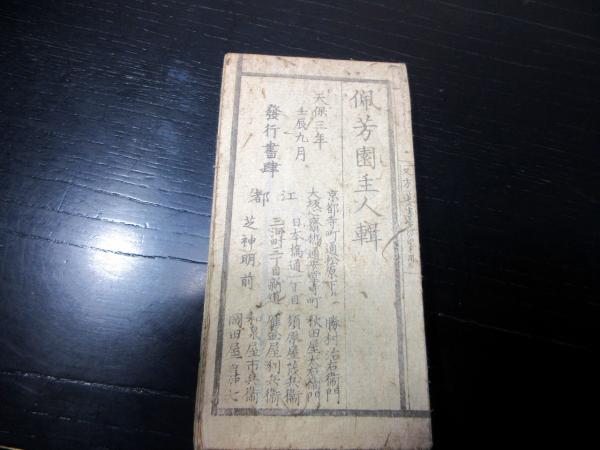 佩芳園主人輯
天保三年
壬辰九月
發行書肆
京都寺町通松原下ル 勝村治右衛門
大坂心斎橋通安堂寺町 秋田屋太右衛門
江都
日本橋通一丁目 須原屋茂兵衛
二丁目新道 雁金屋利兵衛
芝神明前 和泉屋市兵衛
岡田屋嘉七